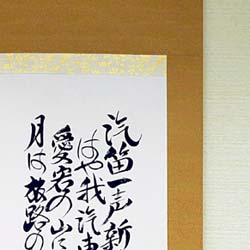 汽笛一声新
はや我汽車
愛宕の山に
月は旅路の